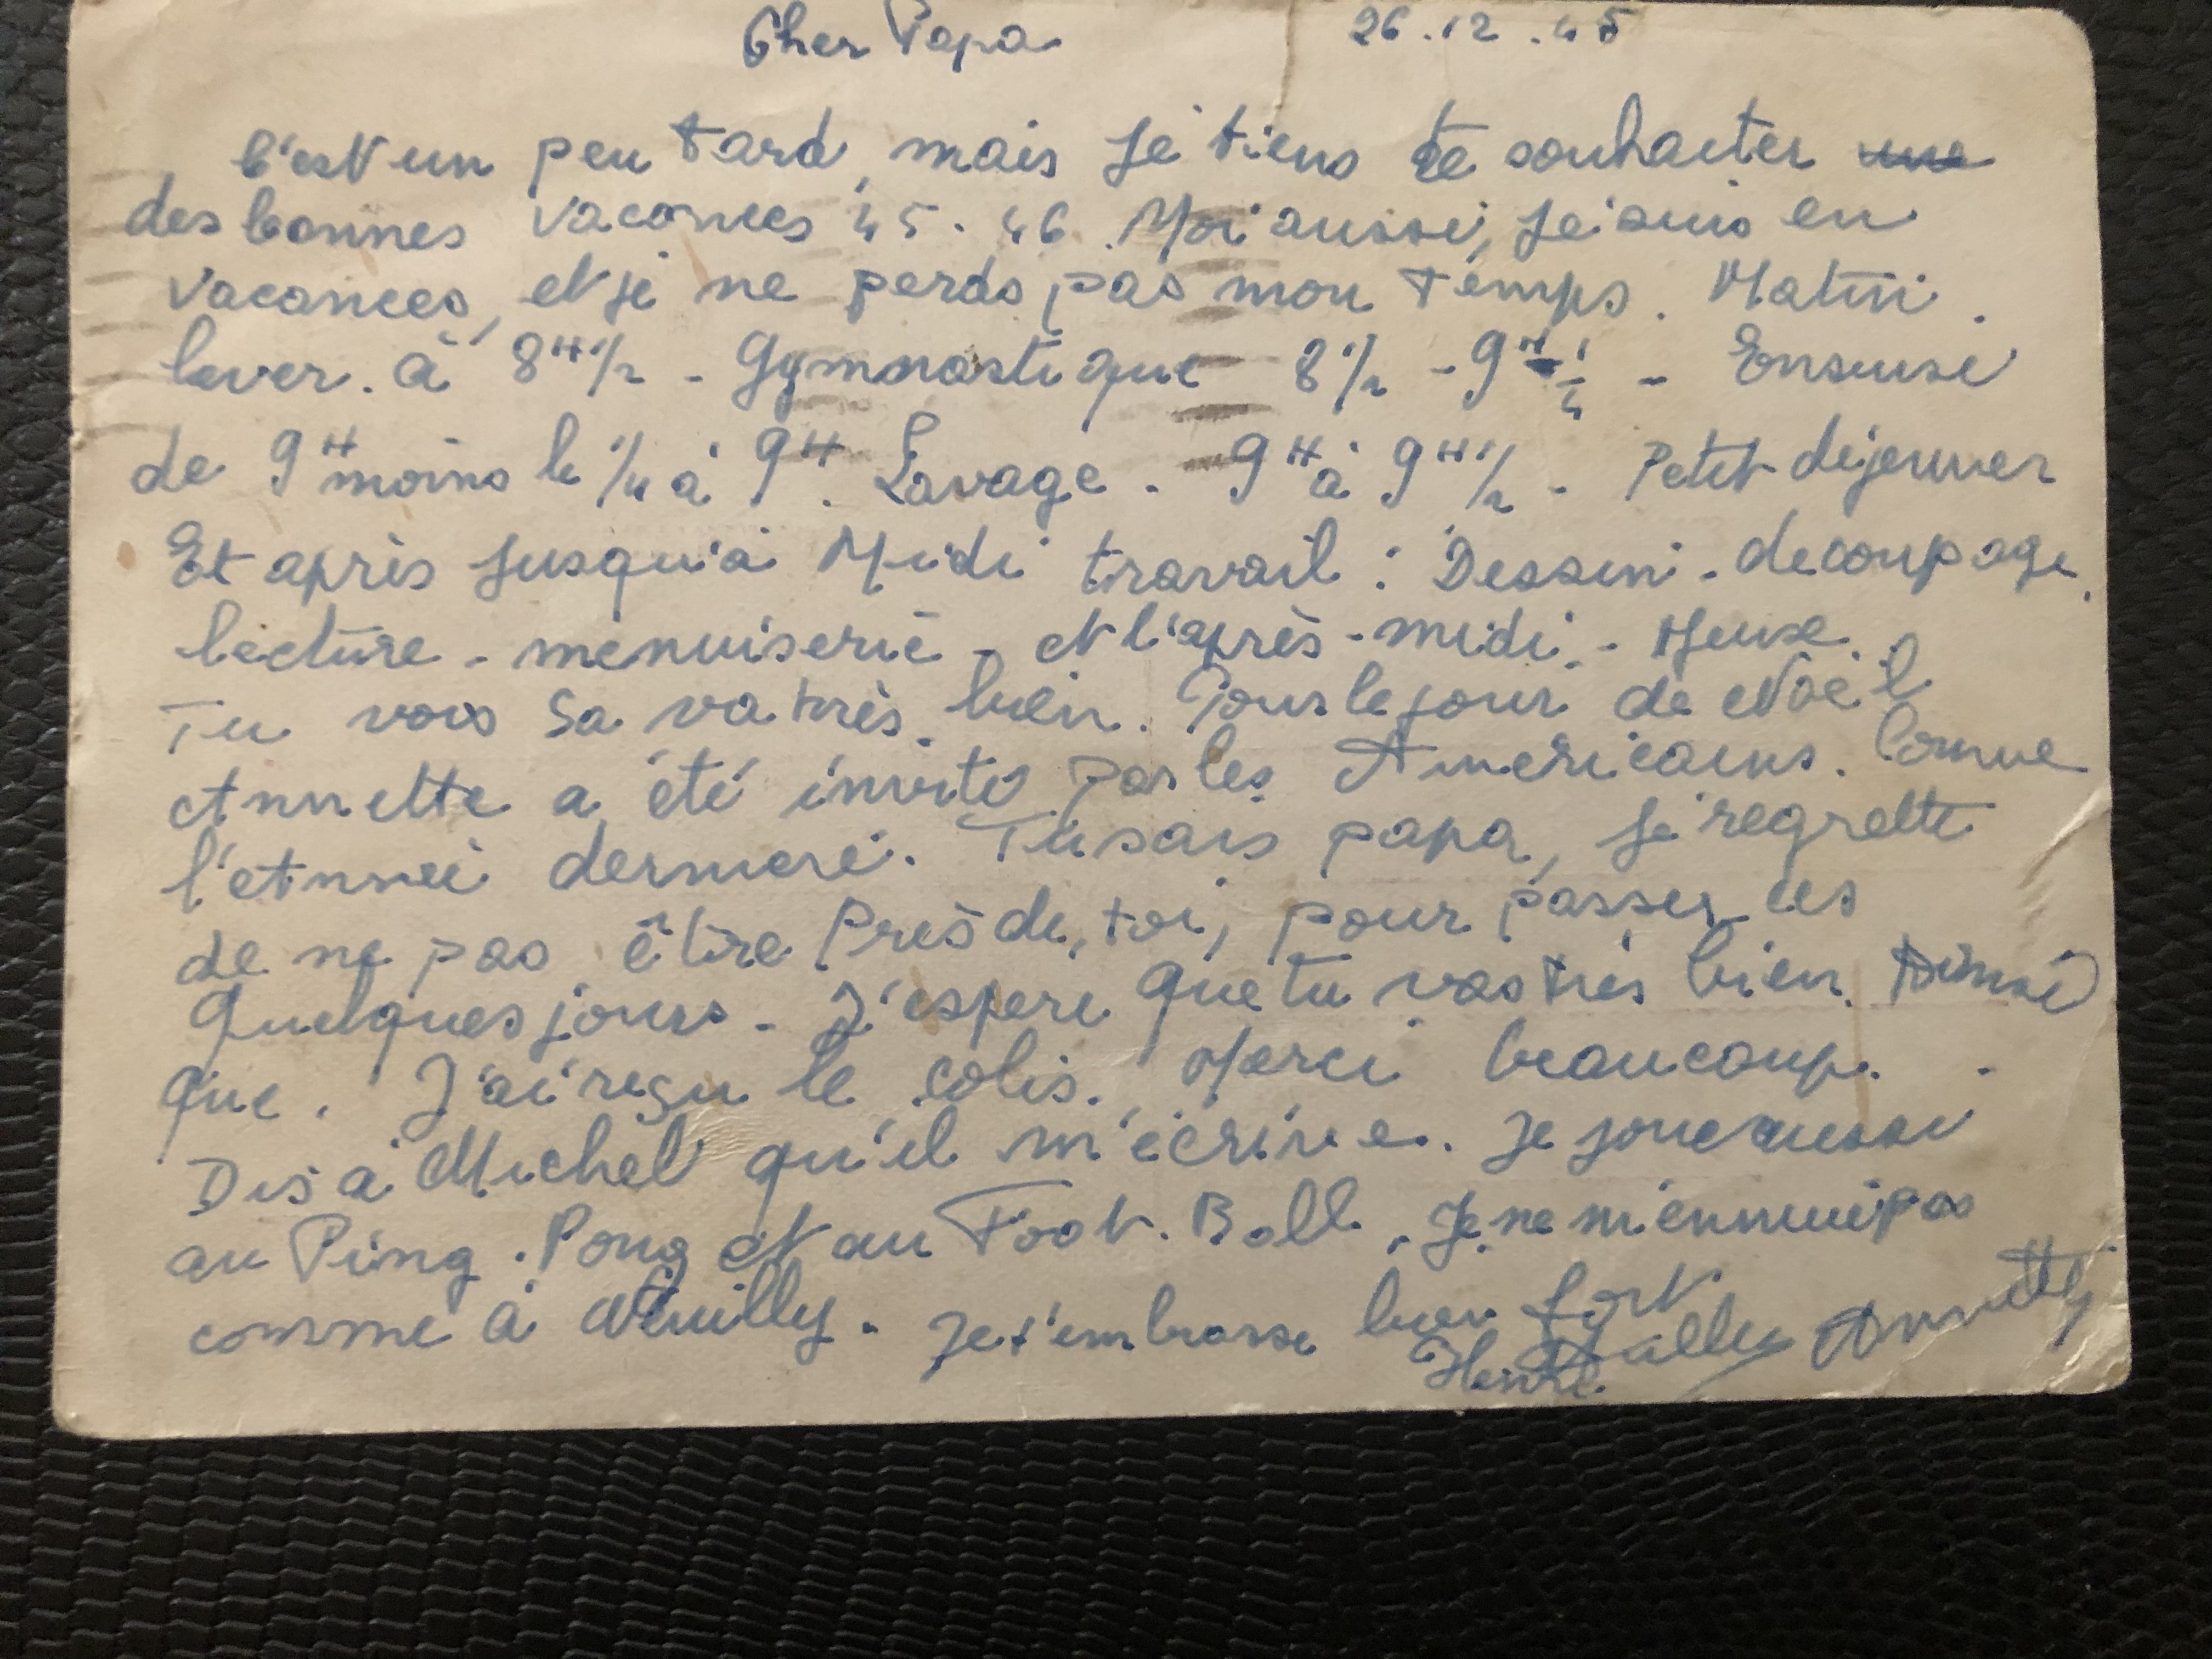 Cher Papa 26.12.45
C'est un peu tard, mais je tiens te souhaiter une
des bonnes vacances 45.46. Moi aussi, je suis en
vacances, et je ne perds pas mon temps. Matin.
lever. à 8H1/2 - Gymnastique 8 1/2 - 9H-1/4 - Ensuise
de 9H moins le 1/4 à 9H. Lavage - 9H à 9H1/2 - Petit déjeuner
Et après jusqu'à Midi travail : Dessin - decoupage.
lecture - menuiserie - et l'après-midi - Jeux.
Tu vois sa va très bien. Pour le jour de Noël
Annette a été invité par les Américains. Comme
l'Année dernière. Tu sais papa, je regrette
de ne pas être Près de toi, pour passer ces
Quelques jours - J'espère que tu vas très bien. Ainsi
que. J'ai reçu le colis. Merci beaucoup.
Dis à Michel qu'il m'écrive. Je joue aussi
au Ping-Pong et au Foot-Ball. Je ne m'ennuie pas
comme à Neuilly. Je t'embrasse bien fort
Henri Annette